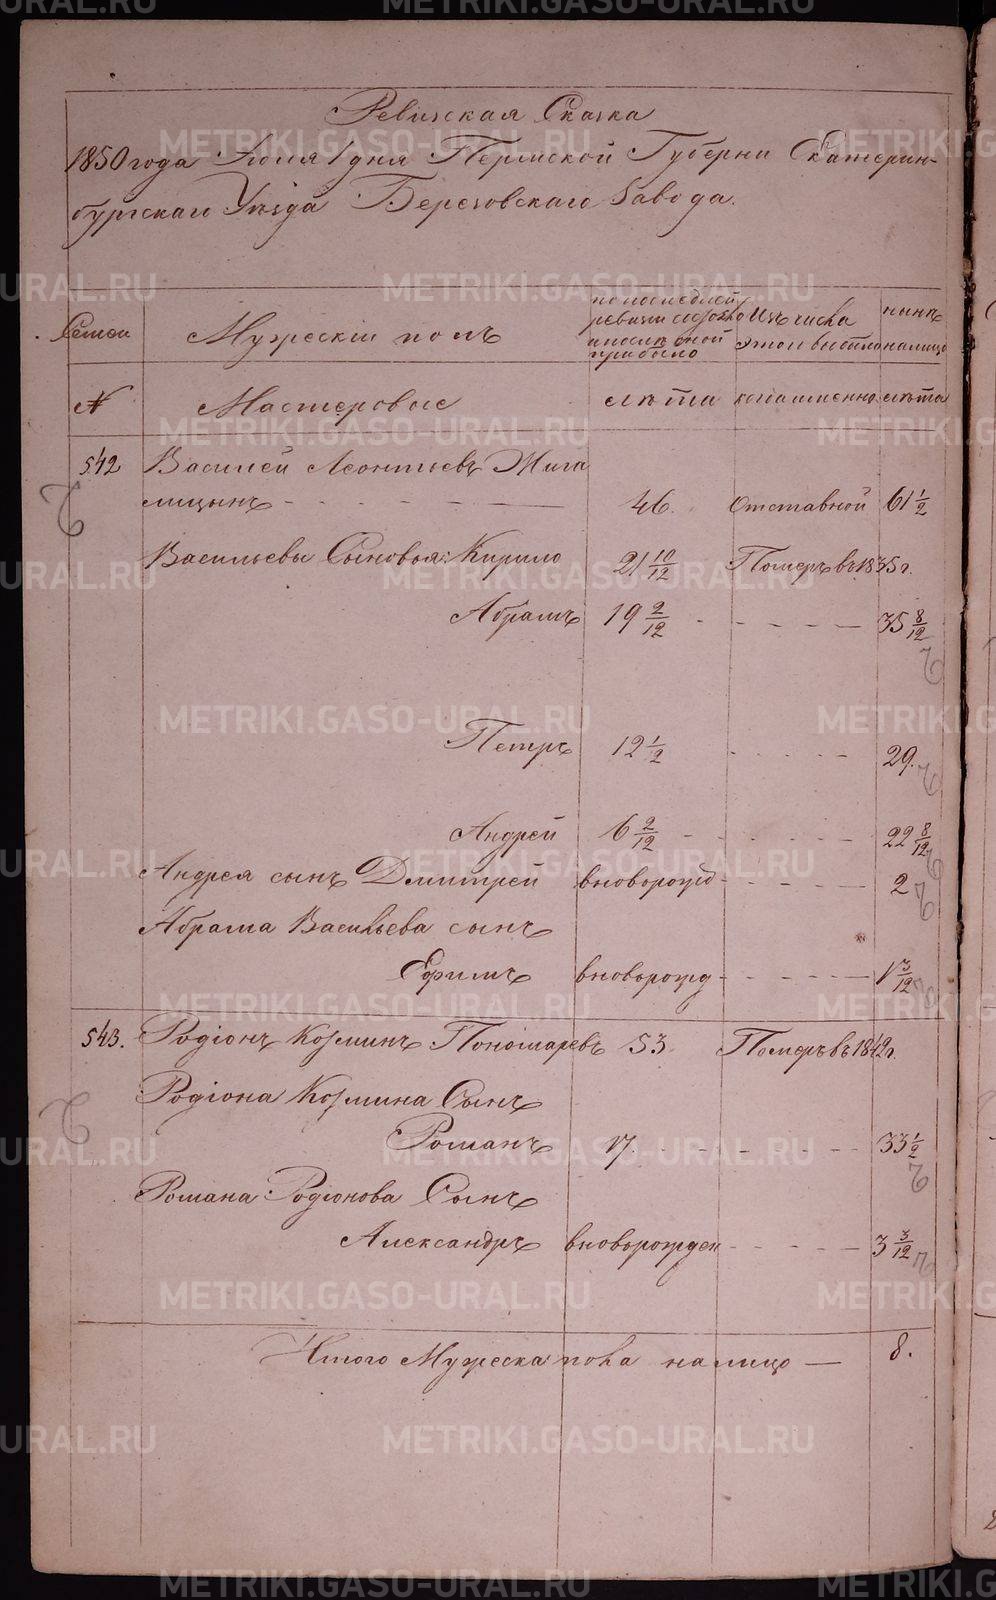 Ревизская Сказка
1850 года Юоля 1 дня Пермской Губерни Екатерин-
бургскаго Уѣзда Березовскаго Завода.
Семеи
Мужескiи полъ
по последней
ревизи состояло
и после оной
прибыло
Изъ числа
этого выбыло
нынѣ
налицо
№
Мастеровые
лѣта
когда именно
лѣта
542
Василей Леонтьевъ Жига
лицынъ
46.
Отставной
61 1/2
Васильевы Сыновья: Кирило
21 10/12
Померъ въ 1835 г.
Абрамъ
19 2/12
35 8/12
Петръ
12 1/2
29.
Андрей
6 2/12
22 8/12
Андрея сынъ Дмитрей
вноворожд
2
Абрама Васильева сынъ
Ефимъ
вноворожд
1 3/12
543.
Родiонъ Козминъ Пономаревъ
53
Померъ въ 1842 г.
Родiона Козмина Сынъ
Романъ
17.
33 1/2
Романа Родiонова Сынъ
Александръ
вноворожден
3 3/12
Итого Мужеска пола налицо —
8.
METRIKI.GASO-URAL.RU